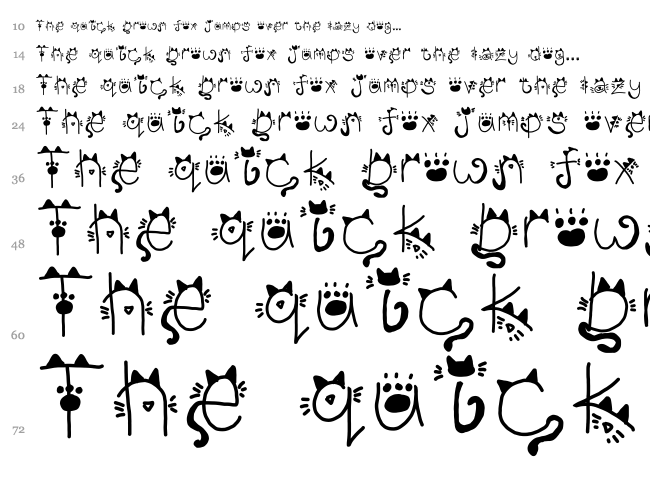 10 The quick brown fox jumps over the lazy dog...
14 The quick brown fox jumps over the lazy dog...
18 The quick brown fox jumps over the lazy
24 The quick brown fox jumps over
36 The quick brown fox
48 The quick brow
60 The quick br
72 The quick